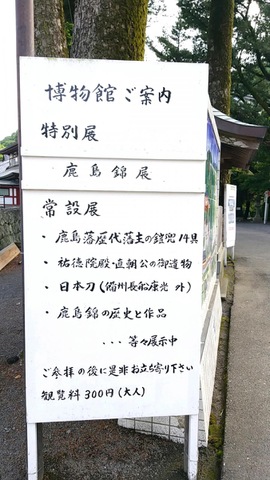 博物館ご案内
特別展
鹿島錦展
常設展
・鹿島藩歴代藩主の鎧兜14具
・祐徳院殿・直朝公の御遺物
・日本刀(備州長船康光 外)
・鹿島錦の歴史と作品
・・・等々展示中
ご参拝の後に是非お立ち寄り下さい
観覧料300円(大人)